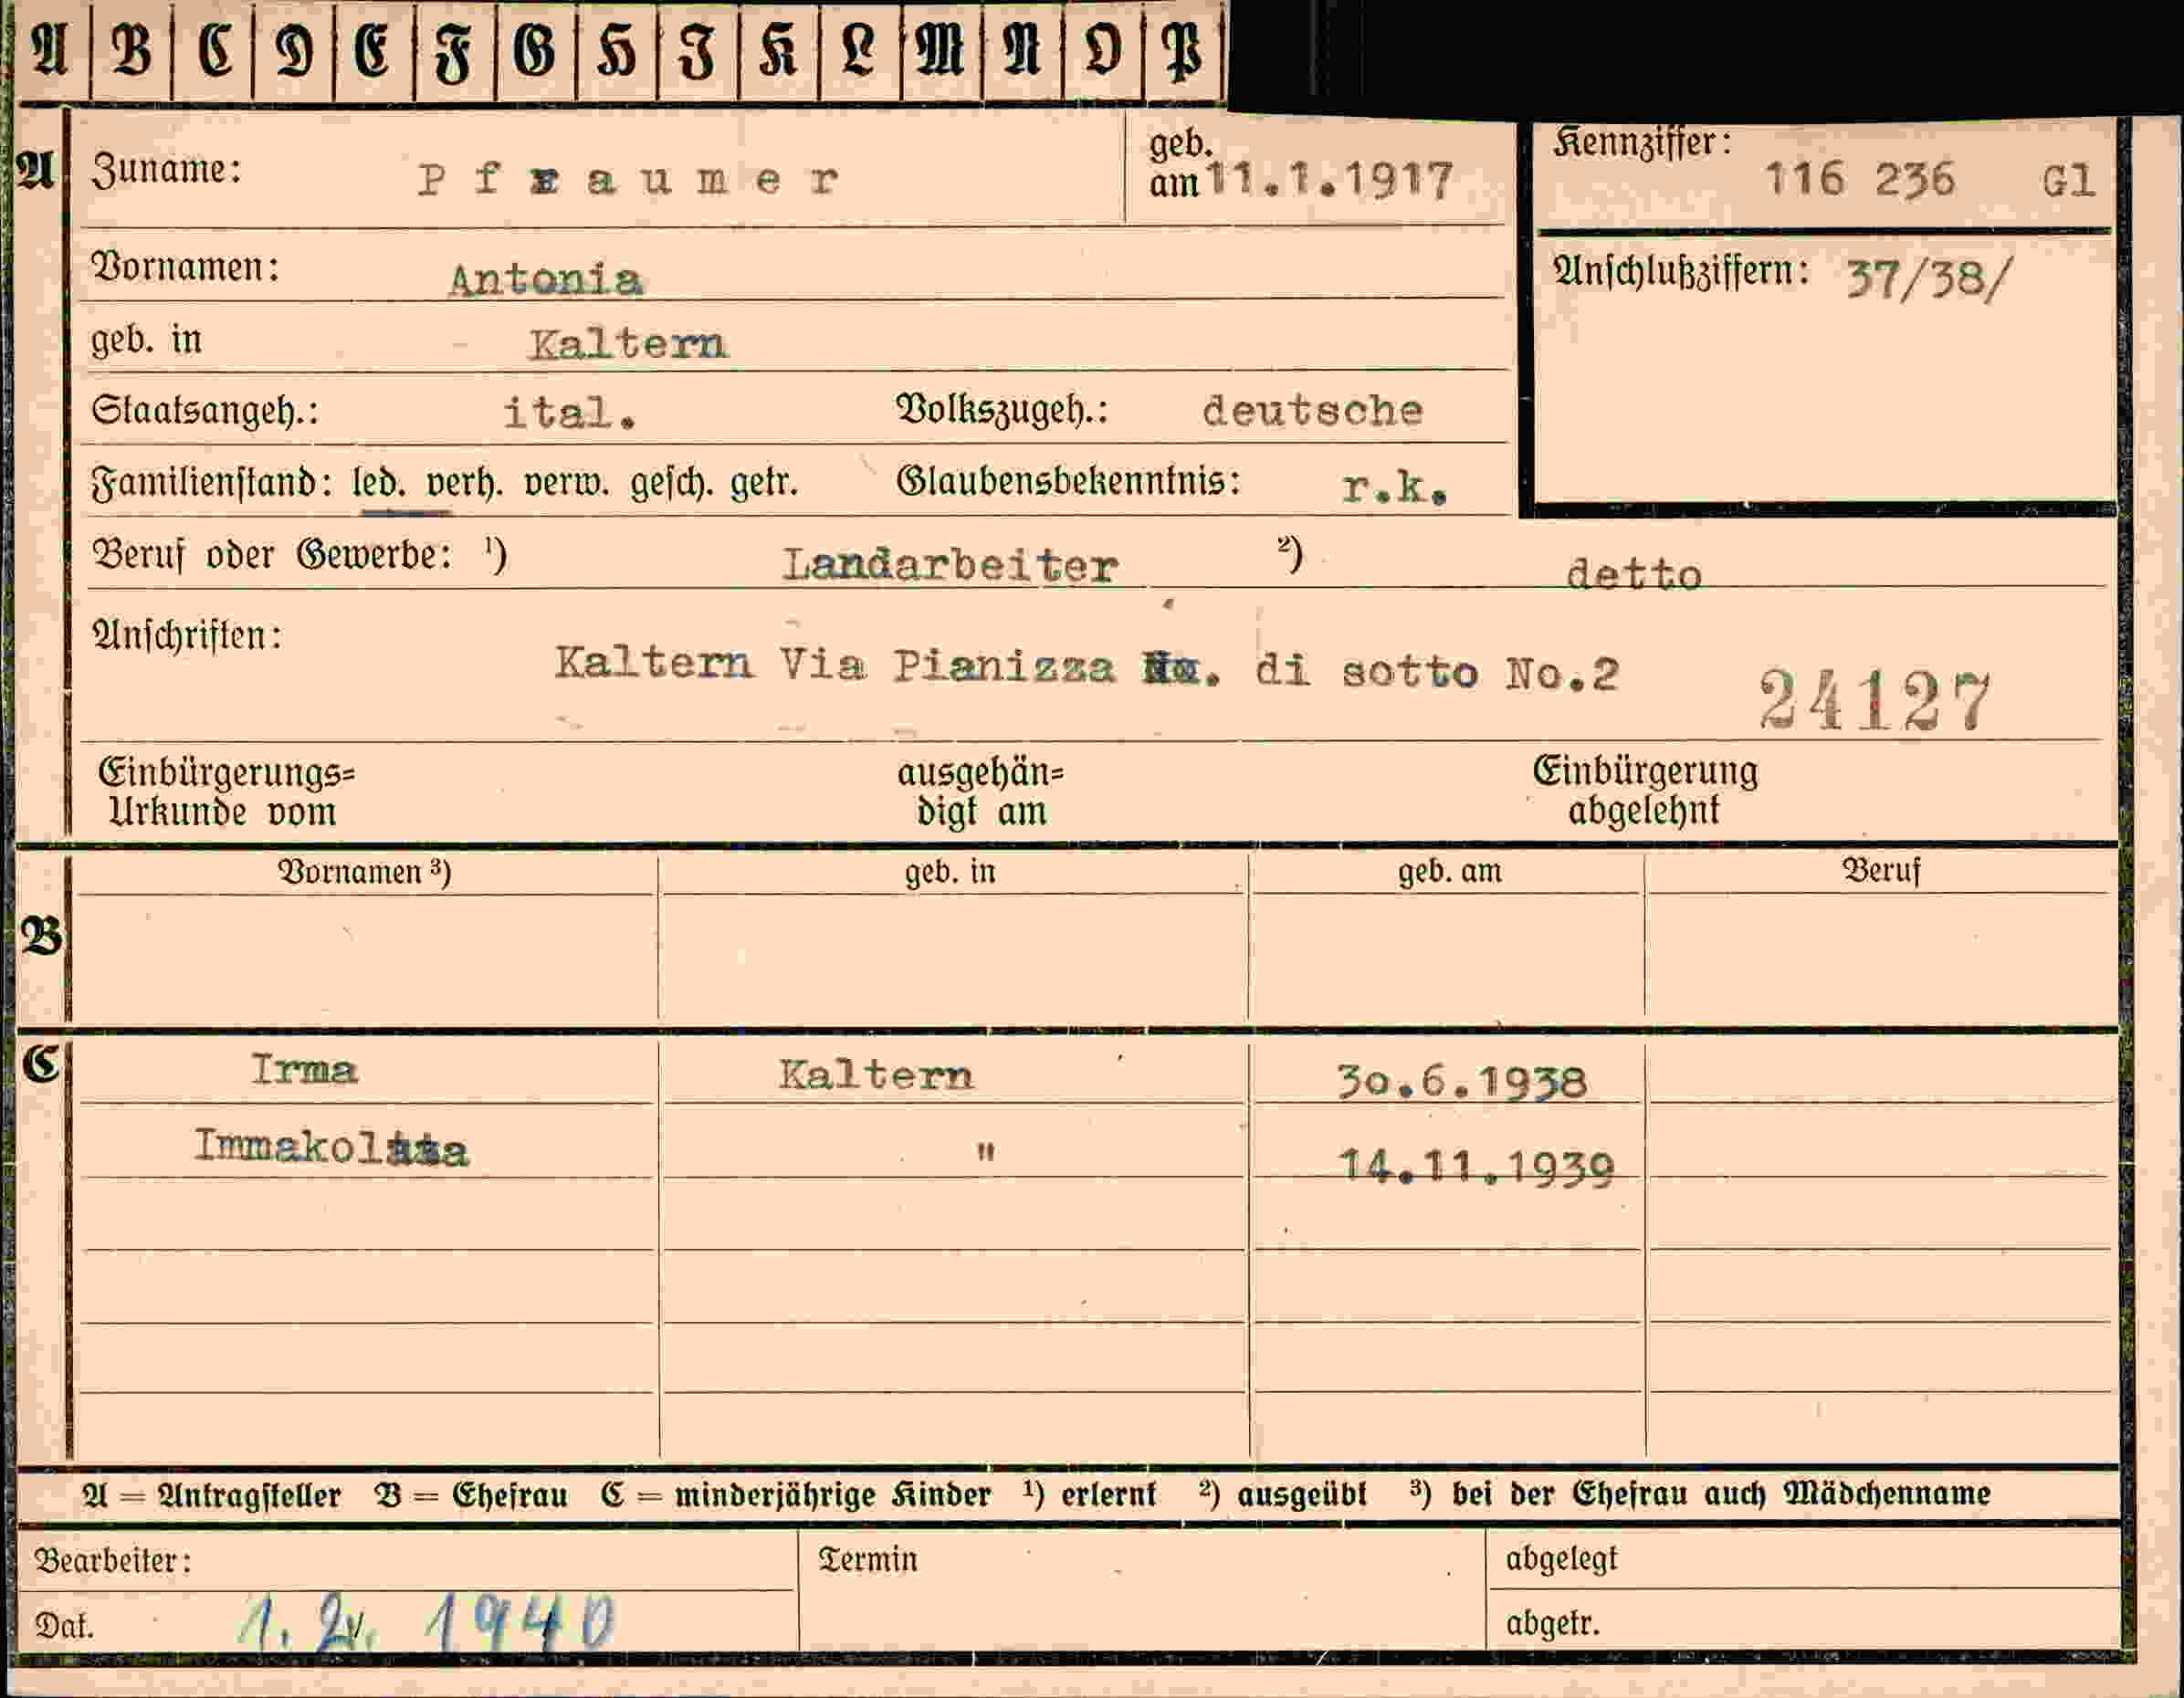 A B C D E F G H I K L M N O P
A Zuname: Pfraumer geb. am 11.1.1917 Kennziffer: 116 236 Gl
Vornamen: Antonia Anschlußziffern: 37/38/
geb. in Kaltern
Staatsangeh.: ital. Volkszugeh.: deutsche
Familienstand: led. verh. verw. gesch. getr. Glaubensbekenntnis: r.k.
Beruf oder Gewerbe: ¹) Landarbeiter ²) detto
Anschriften: Kaltern Via Pianizza di sotto No.2 24127
Einbürgerungs= ausgehän= Einbürgerung
Urkunde vom digt am abgelehnt
Vornamen ³) geb. in geb. am Beruf
B
C Irma Kaltern 30.6.1938
Immakolata " 14.11.1939
A = Antragsteller B = Ehefrau C = minderjährige Kinder ¹) erlernt ²) ausgeübt ³) bei der Ehefrau auch Mädchenname
Bearbeiter: Termin abgelegt
Dat. 1. 2. 1940 abgetr.